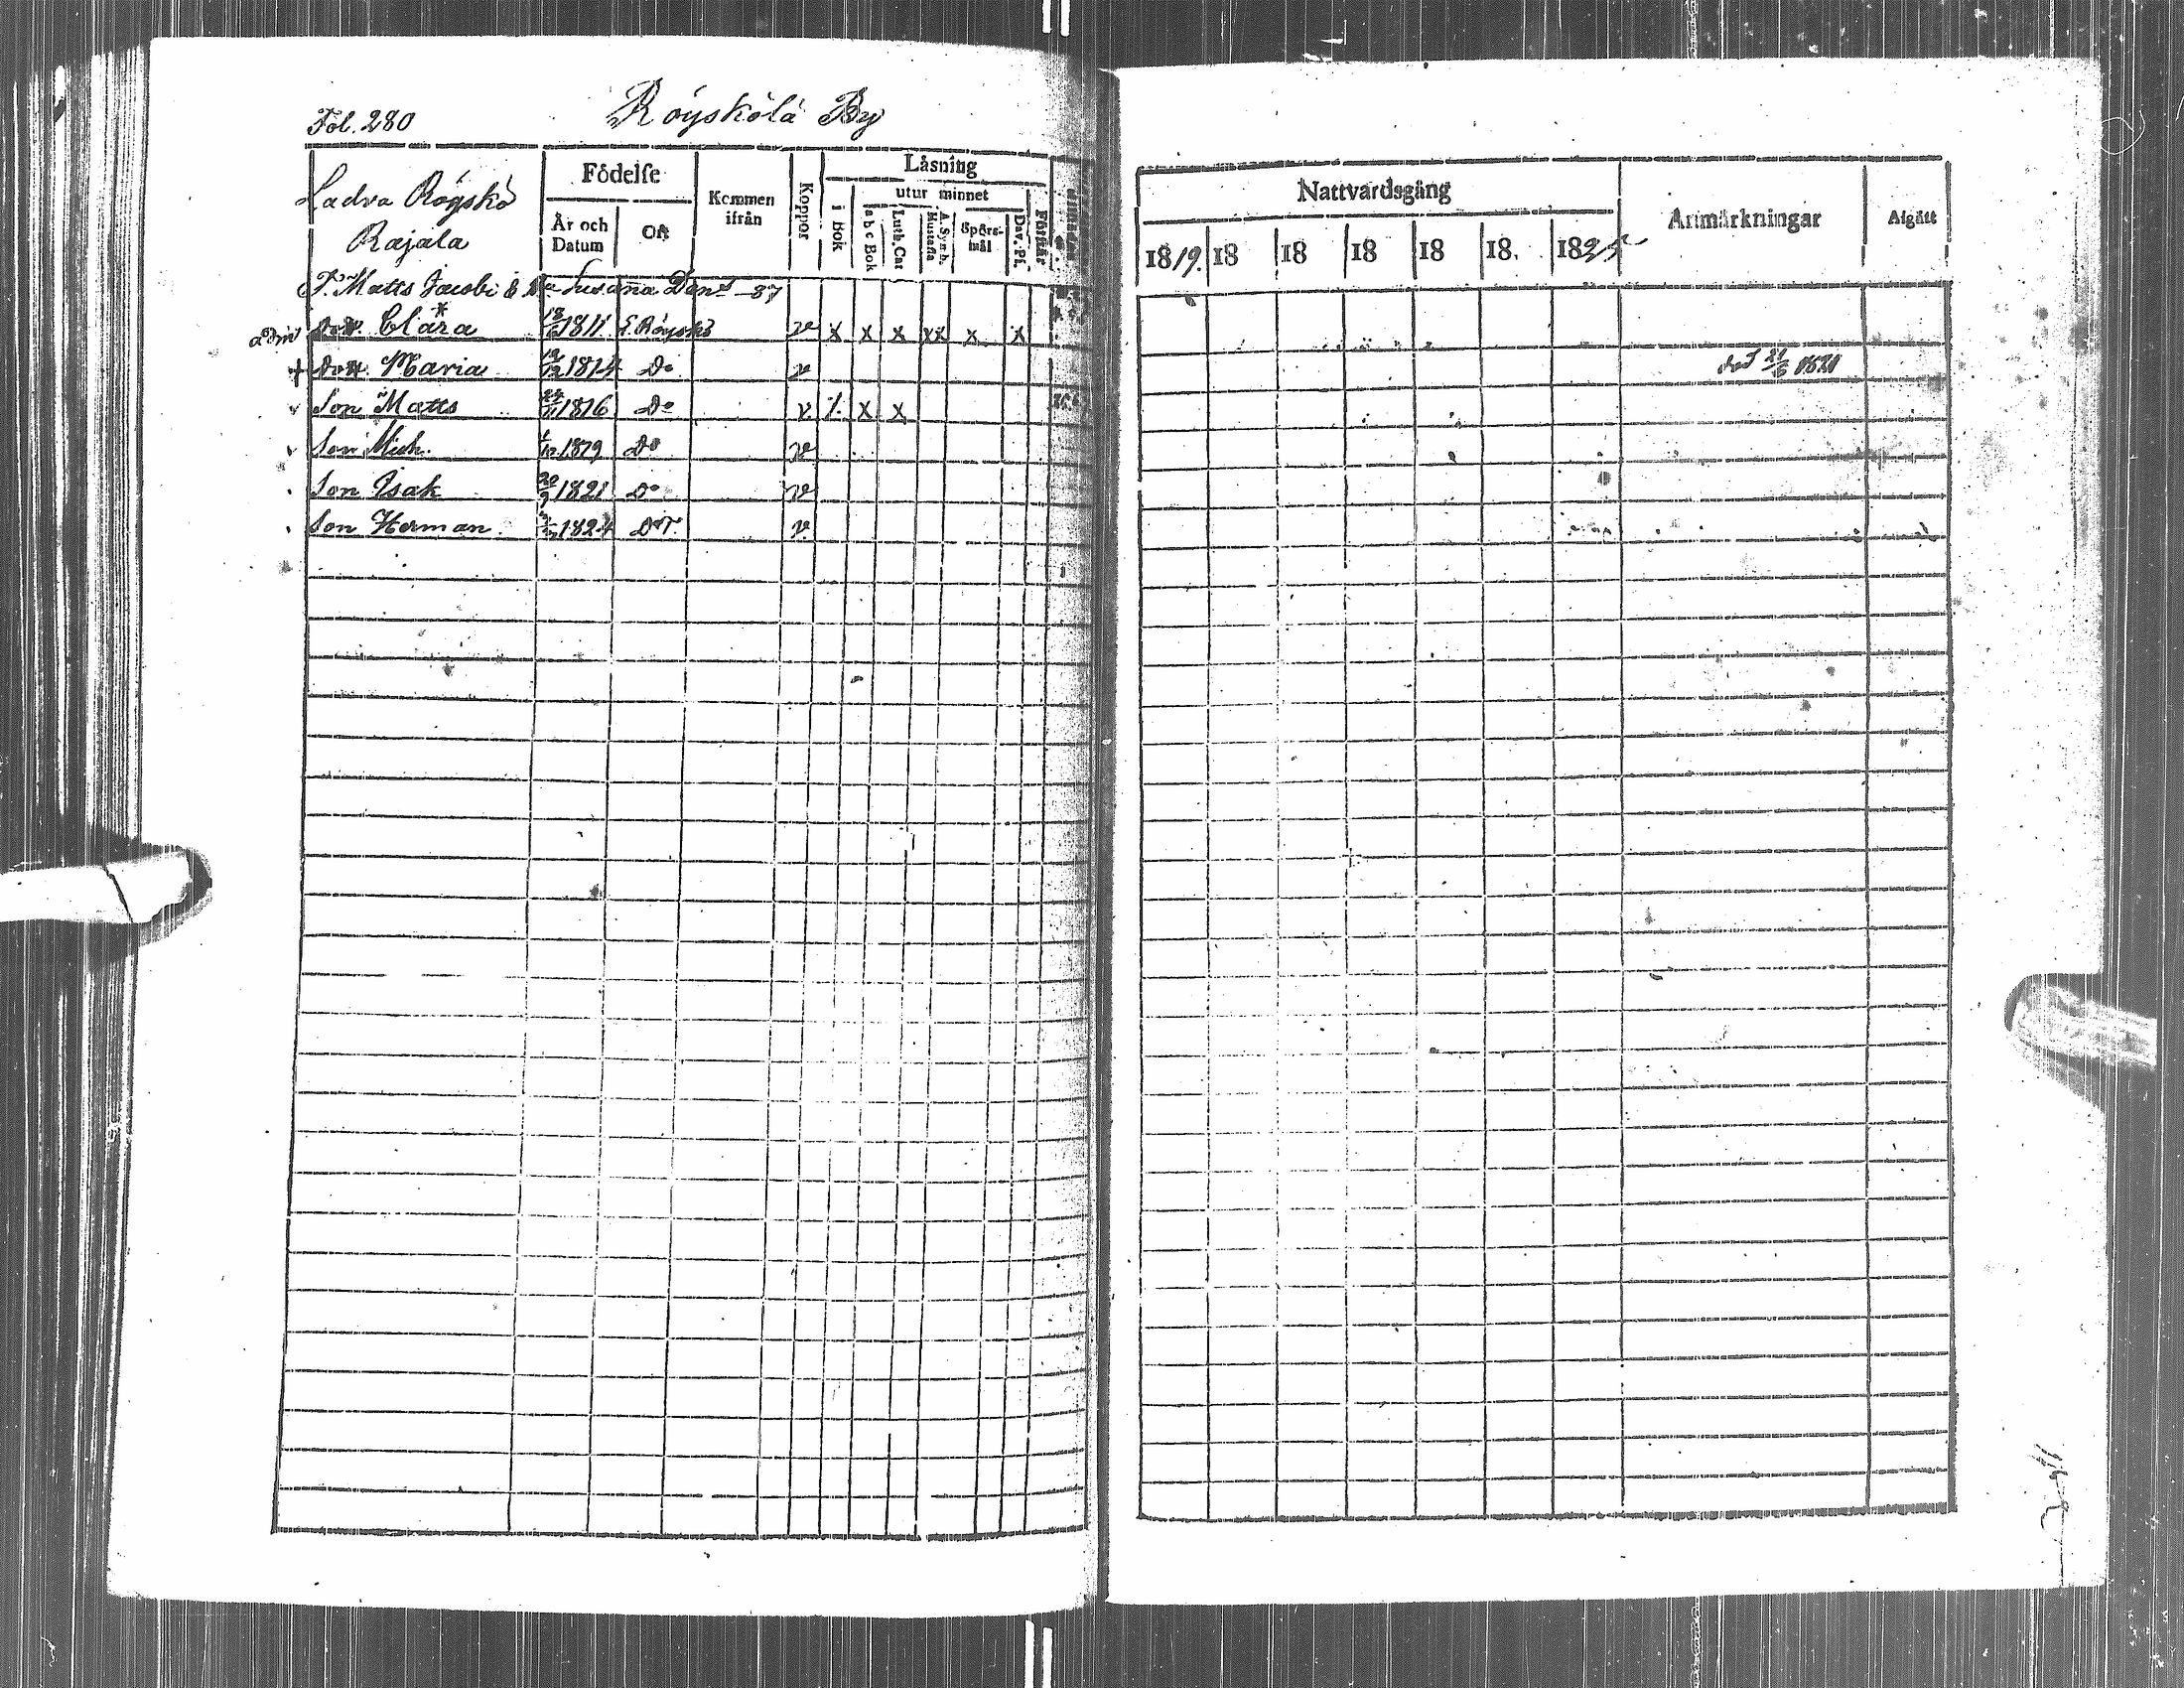 Fol. 280 Röyskölä By
Ladva Röyskö
Rajala
Födelse
År och Datum
Ort
Kommen ifrån
Koppor
Läsning
i Bok
utur minnet
a b c Bok
Luth. Cat
A. Symb.
Hustafla
Spörs-mål
Dav. Ps.
Förstår
F. Matts Jacobi & Susanna Dan. -87
adm Dott. Clara 18 1811 Röyskö v x x x xx x x
+ Dott. Maria 19/12 1814 Do v
v Son Matts 24/11 1816 Do v x x
v Son Mich. 1819 Do v
Son Isak 20/9 1821 Do v
Son Herman 1824 v
Nattvardsgång
1819. 18 18 18 18 18. 1825
Anmärkningar
Afgått
död 21/6 1821